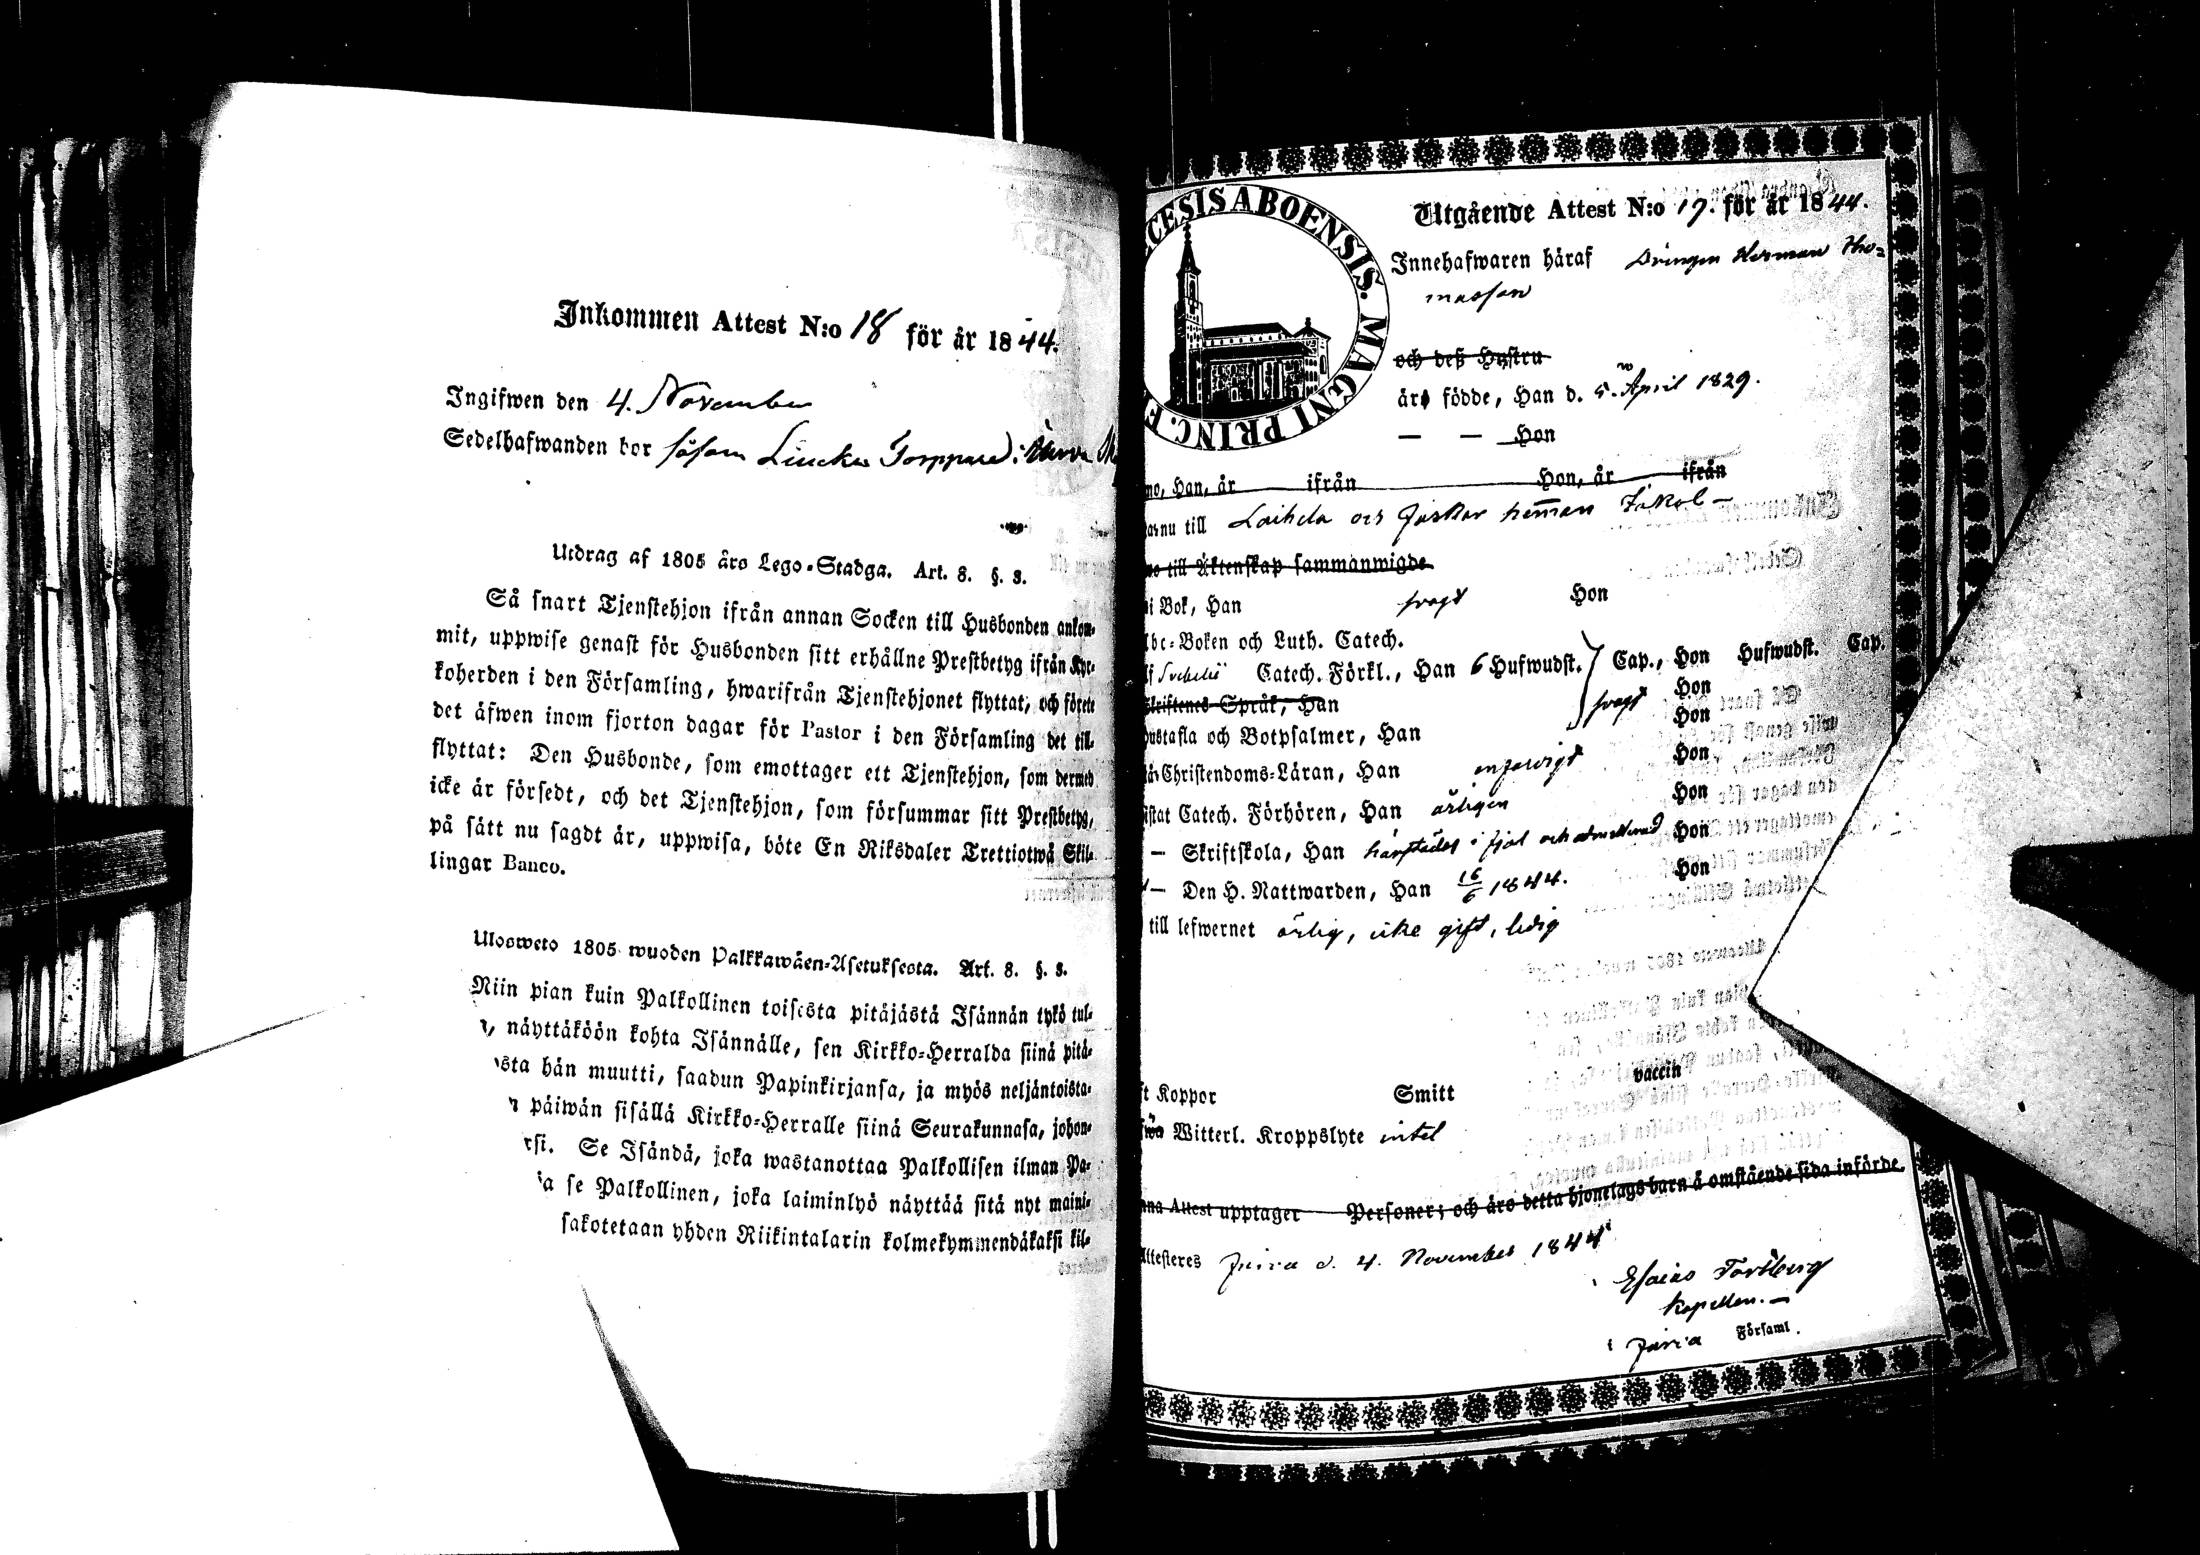 Inkommen Attest N:o 18 för år 1844.
Ingifwen den 4. November
Sedelhafwanden bor såsom Torppare i
Utdrag af 1805 års Lego-Stadga. Art. 8. §. 3.
Så snart Tjenstehjon ifrån annan Socken till Husbonden ankom-
mit, uppwise genast för Husbonden sitt erhållne Prestbetyg ifrån Kyr-
koherden i den Församling, hwarifrån Tjenstehjonet flyttat, och förete
det äfwen inom fjorton dagar för Pastor i den Församling det till-
flyttat: Den Husbonde, som emottager ett Tjenstehjon, som dermed
icke är försedt, och det Tjenstehjon, som försummar sitt Prestbetyg,
på sätt nu sagdt är, uppwisa, böte En Riksdaler Trettiotwå Skil-
lingar Banco.
Ulosweto 1805 wuoden Palkkawäen-Asetuksesta. Art. 8. §. 3.
Niin pian kuin Palkollinen toisesta pitäjästä Isännän tykö tul-
, näyttäköön kohta Isännälle, sen Kirkko-Herralda siinä pitä-
sta hän muutti, saadun Papinkirjansa, ja myös neljäntoista-
n päiwän sisällä Kirkko-Herralle siinä Seurakunnasa, johon-
rsi. Se Isändä, joka wastanottaa Palkollisen ilman Pa-
a se Palkollinen, joka laiminlyö näyttää sitä nyt maini-
sakotetaan yhden Riikintalarin kolmekymmendäkaksi kil-
CESIS ABOENSIS. MAGNI PRINC. F
Utgående Attest N:o 17. för år 1844.
Innehafwaren häraf Drängen Herman Tho-
masson
och deß Hustru
äro födde, Han d. 5. April 1829.
— — Hon
no, Han, år ifrån Hon, år ifrån
nu till Laihela och Jakkol
no till Äktenskap sammanwigde
i Bok, Han svagt Hon
Abc-Boken och Luth. Catech.
Svebelii Catech. Förkl., Han 6 Hufwudst. Cap., Hon Hufwudst. Cap.
skriftenes Språk, Han svagt Hon
hustafla och Botpsalmer, Han Hon
Christendoms-Läran, Han enfaldigt Hon
istat Catech. Förhören, Han årligen Hon
— Skriftskola, Han härstädes i fjol och admitterad Hon
— Den H. Nattwarden, Han 16/6 1844. Hon
till lefwernet ärlig, icke gift, ledig
ft Koppor Smitt vaccin
Witterl. Kroppslyte intet
nna Attest upptager Personer; och äro detta hjonelags barn å omstående sida införde.
Attesteres d. 4. November 1844
Esaias Forsberg
kapellan. —
i Församl.